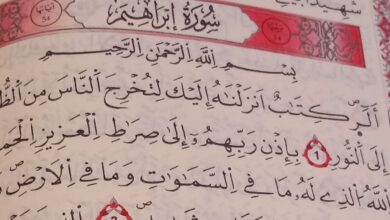 سُورَةُ اِبْرٰاهِيمَ
بِسْمِ اللّٰهِ الرَّحْمٰنِ الرَّحِيمِ
الٓرٰ كِتَابٌ اَنْزَلْنٰهُ اِلَيْكَ لِتُخْرِجَ النَّاسَ مِنَ
اِلَى النُّورِ ١ بِاِذْنِ رَبِّهِمْ اِلٰى صِرَاطِ الْعَزِيزِ
اللّٰهِ الَّذِى لَهُ مَا فِى السَّمٰوَاتِ وَمَا فِى الْاَرْضِ